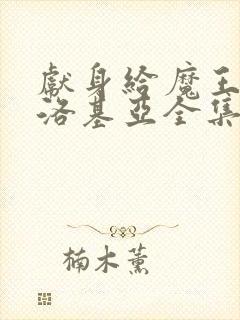 獻身給魔王伊
洛基亞全集
楠木薰